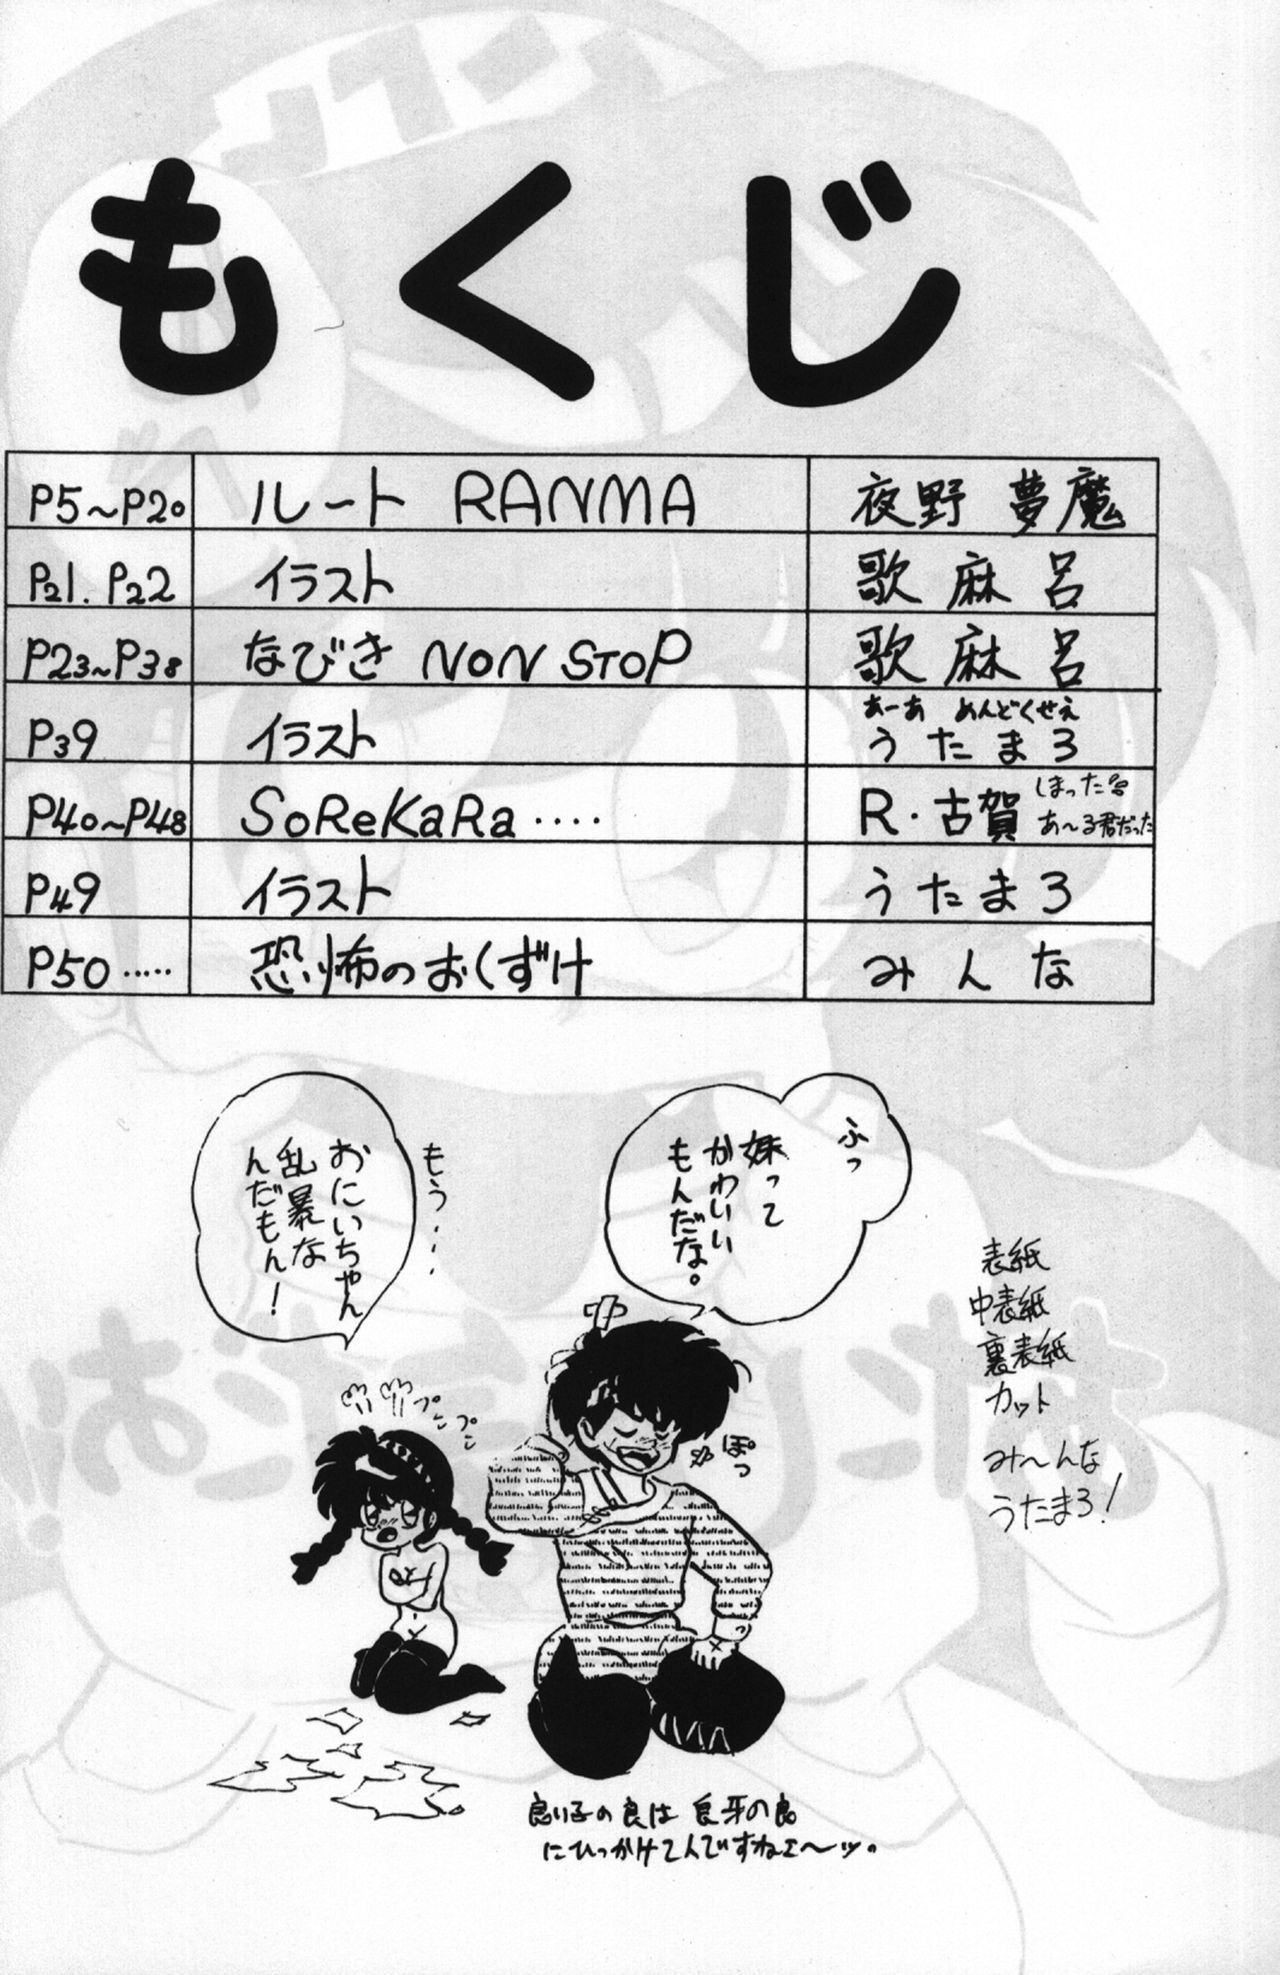 もくじ
P5〜P20 ルート RANMA 夜野 夢魔
P21. P22 イラスト 歌麻呂
P23〜P38 なびき NON STOP 歌麻呂
あーあ めんどくせえ
P39 イラスト うたまろ
P40〜P48 SoReKaRa‥‥ R・古賀 しまった
あ〜る君だった
P49 イラスト うたまろ
P50‥‥‥ 恐怖のおくずけ みんな
ふっ
妹って
かわいい
もんだな。
もう‥‥
おにいちゃん
乱暴な
んだもん!
プン
プン
ぽっ
表紙
中表紙
裏表紙
カット
み〜んな
うたまろ!
良い子の良は 良牙の良
にひっかけてんですねェ〜ッ。